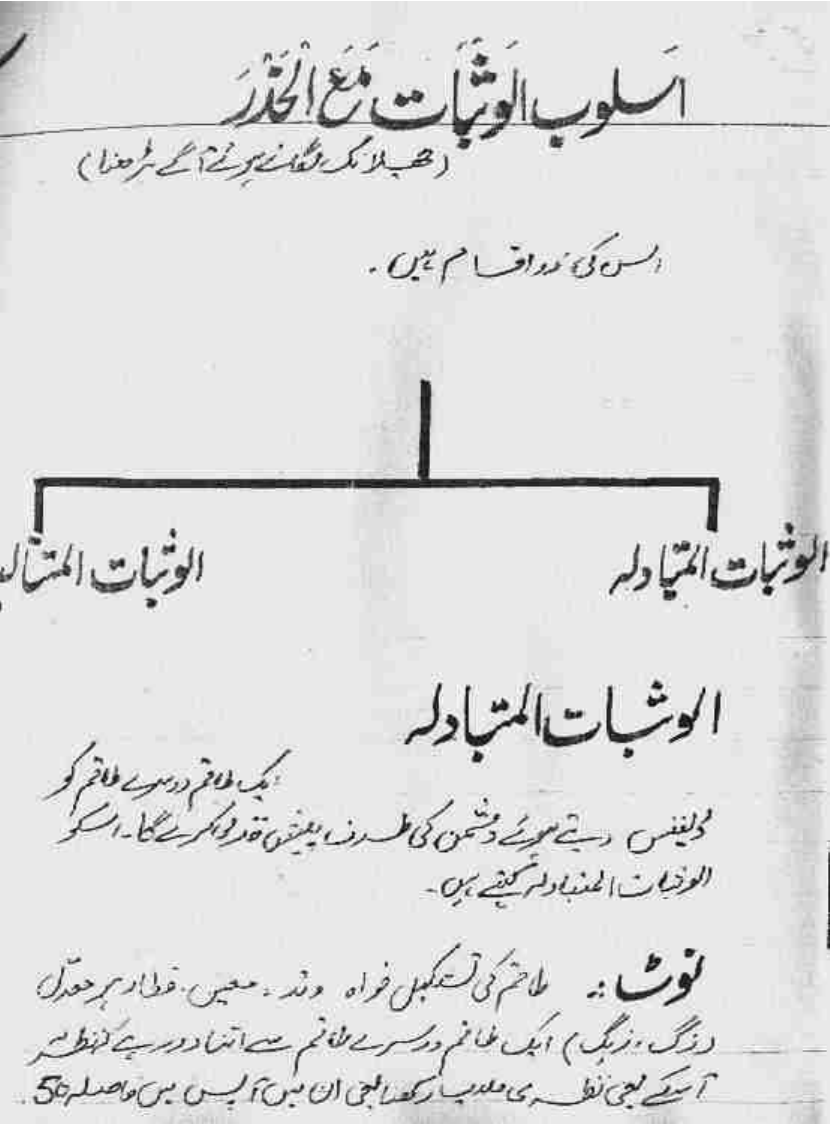 اسلوب الوثبات مع الحذر
(چھلانگ لگاتے ہوئے آگے بڑھنا)
اس کی دو اقسام ہیں۔
الوثبات المتبادلہ
الوثبات
الوثبات المتبادلہ
ایک طاقم دوسرے طاقم کو
ڈیفنس دیتے ہوئے دشمن کی طرف پیش قدمی کرے گا۔ اسکو
الوثبات المتبادلہ کہتے ہیں۔
نوٹ:۔ طاقم کی تشکیل خواہ وتد، معین، قطار ہر معدل
(زگ، زیگ) ایک طاقم دوسرے طاقم سے اتنا دور رہے کہ نظر
آسکے یعنی نظری ملاپ رکھنا یعنی ان میں آپس میں فاصلہ 50